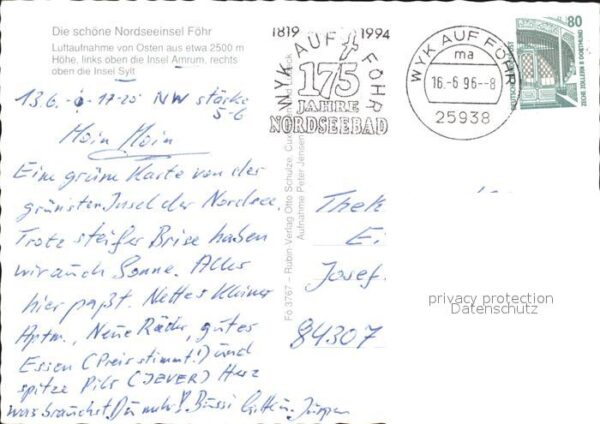 Die schöne Nordseeinsel Föhr
Luftaufnahme von Osten aus etwa 2500 m
Höhe, links oben die Insel Amrum, rechts
oben die Insel Sylt
13.6. 17-20 NW stärke
5-6
Moin Moin
Eine grüne Karte von der
grünsten Insel der Nordsee.
Trotz steifer Brise haben
wir auch Sonne. Alles
hier paßt. Nettes kleines
Aptm., Neue Räder, gutes
Essen (Preis stimmt!) und
spitze Pils (JEVER) Herz
was brauchst Du mehr? Bussi Jürgen
Fö 3767 – Rubin Verlag Otto Schulze, Cuxhaven
Aufnahme Peter Jensen
1819 1994
WYK AUF FÖHR
175
JAHRE
NORDSEEBAD
WYK AUF FÖHR
ma
16.-6.96-8
25938
80
DEUTSCHE BUNDESPOST
ZECHE ZOLLERN II DORTMUND
Thek
Ei
Josef
84307
privacy protection
Datenschutz